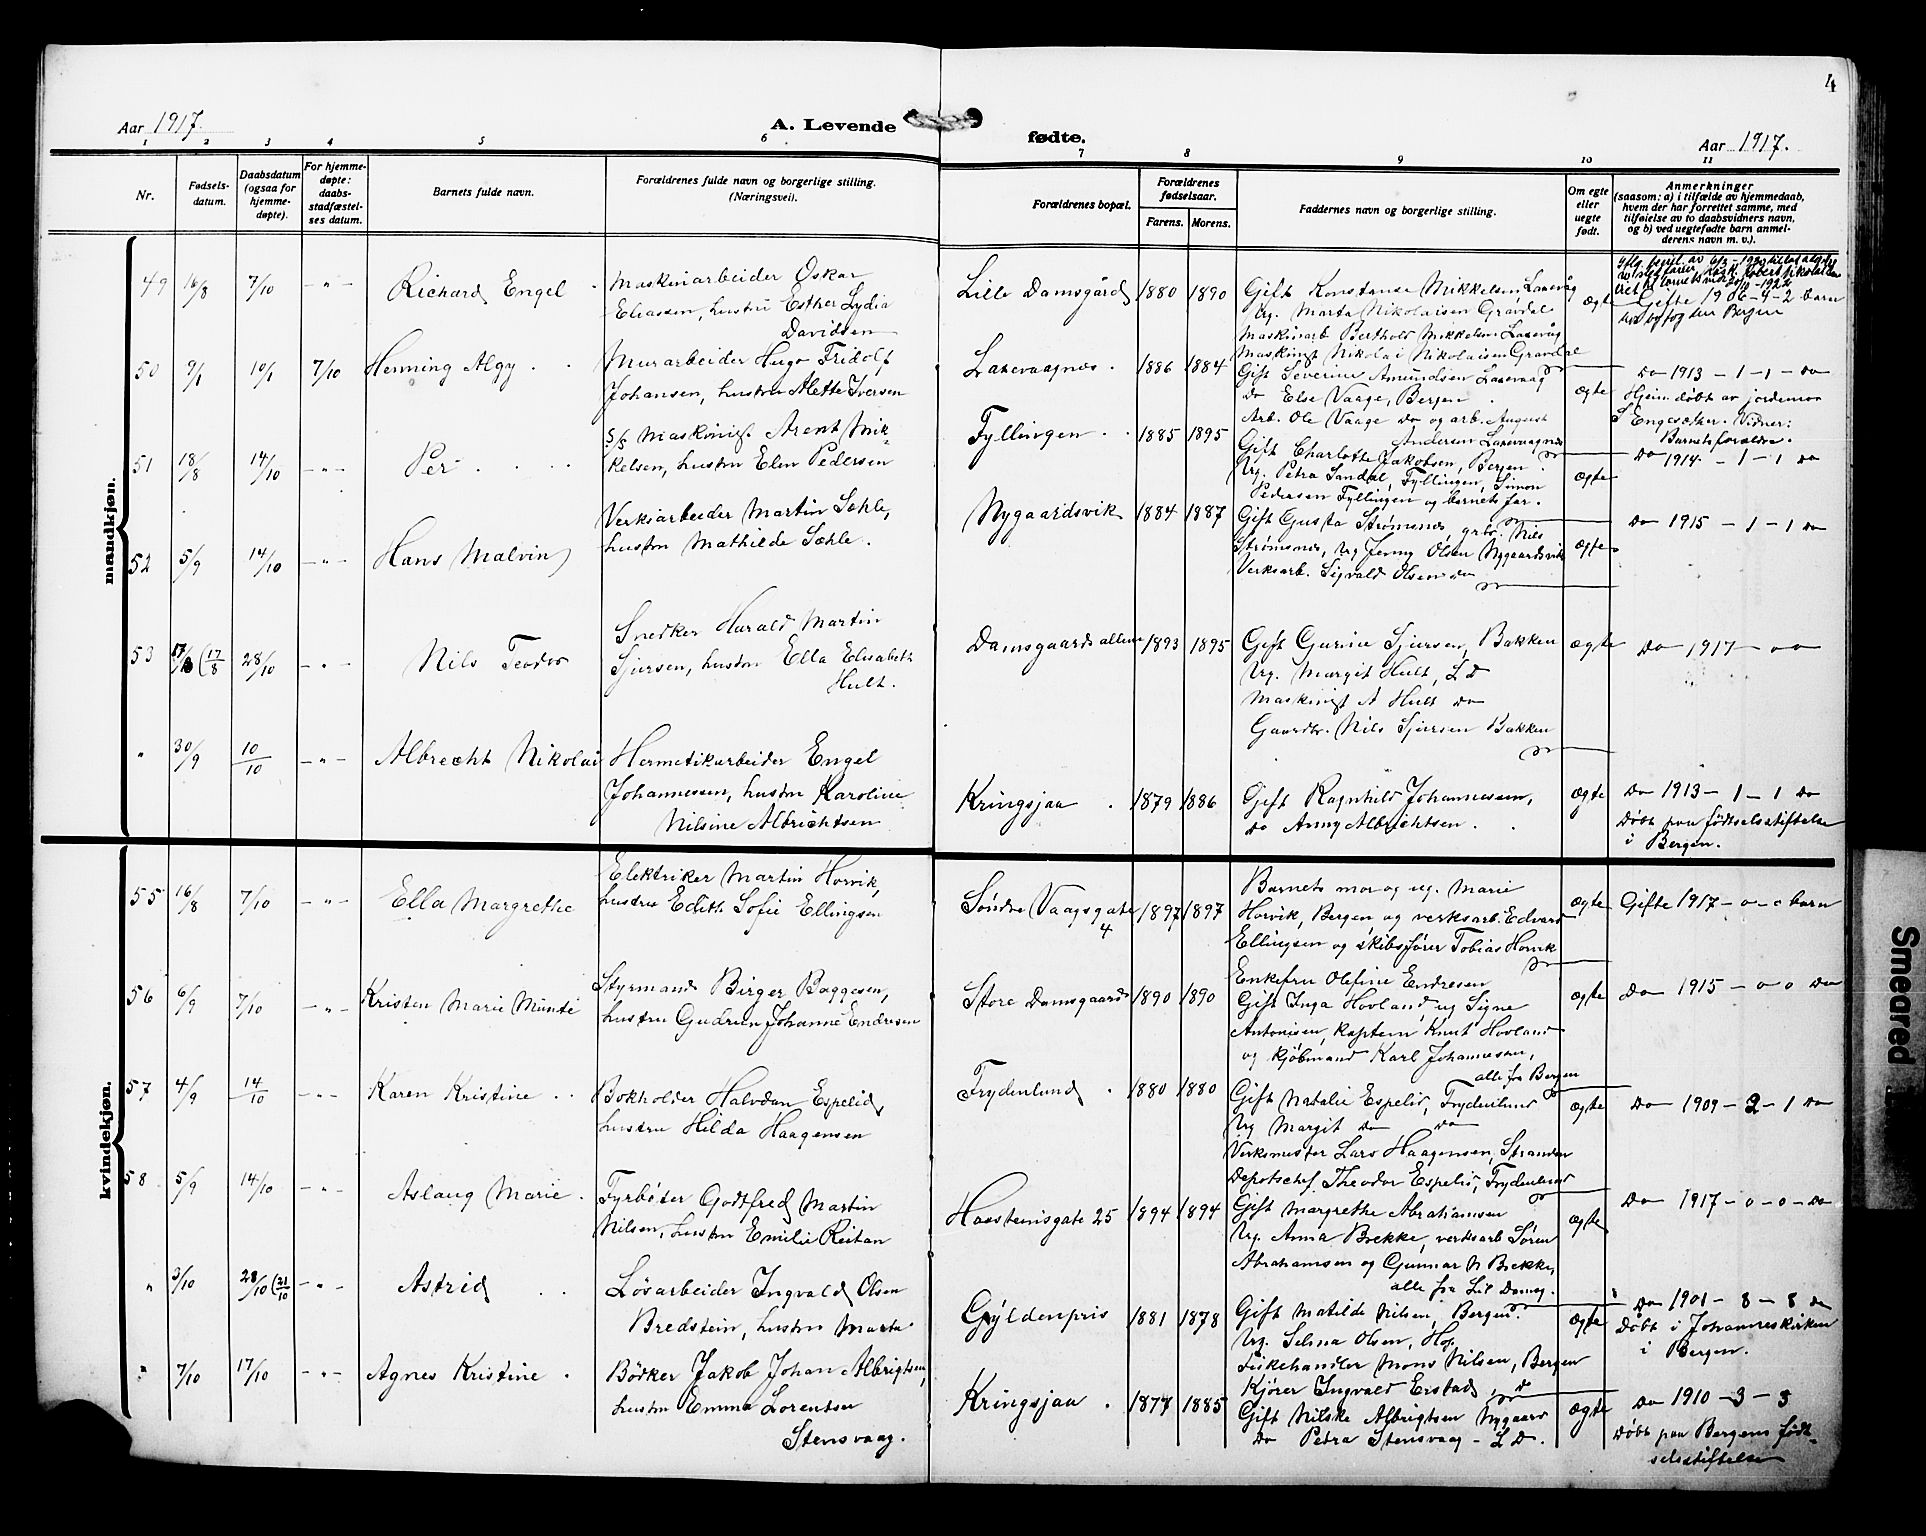 4
Aar 1917.
A. Levende fødte.
Aar 1917.
1 2 3 4 5 6 7 8 9 10 11
Nr.
Fødsels-
datum.
Daabsdatum
(ogsaa for
hjemme-
døpte).
For hjemme-
døpte:
daabs-
stadfæstel-
ses datum.
Barnets fulde navn.
Forældrenes fulde navn og borgerlige stilling.
(Næringsvei).
Forældrenes bopæl.
Forældrenes
fødselsaar.
Farens. Morens.
Faddernes navn og borgerlige stilling.
Om egte
eller
uegte
født.
Anmerkninger
(saasom: a) i tilfælde av hjemmedaab,
hvem der har forrettet samme, med
tilføielse av to daabsvidners navn,
og b) ved uegtefødte barn anmel-
derens navn m. v.).
mandkjøn.
49 16/8 7/10 - " - Richard Engel
Maskinarbeider Oskar
Eliassen, hustru Esther Lydia
Davidsen
Lille Damsgård 1880 1890
Gift Konstanse Mikkelsen, Laxevåg
Ug. Marta Nikolaisen Gravdal
Maskinarb Berthold Mikkelsen Laxevåg
Maskinist Nikolai Nikolaisen Gravdal
ægte
Gifte 1906-4-2 barn
50 9/1 10/1 7/10 Henning Algy
Murarbeider Hugo Fridolf
Johansen, hustru Alette Iversen
Laxevaagnes 1886 1884
Gift Severine Amundsen Laxevaag
Do Else Vaage, Bergen
Arb. Ole Vaage Do og arb. August
Andersen Laxevaagnes
ægte
Do 1913 - 1 - 1 - Do
Hjem døbt av jordemor
S Engesæter. Vidner:
Barnets forældre.
51 18/8 14/10 - " - Per
S/S Maskinist. Arent Mik-
kelsen, hustru Elen Pedersen
Fyllingen 1885 1895
Gift Charlotte Jakobsen, Bergen
Ug. Petra Sandal, Fyllingen, Simon
Pedersen Fyllingen og barnets far.
ægte
Do 1914 - 1 - 1 Do
52 5/9 14/10 - " - Hans Malvin
Verksarbeider Martin Sæhle,
hustru Mathilde Sæhle.
Nygaardsvik 1884 1887
Gift Gusta Strømsnes, grbr. Nils
Strømsnes, Ug Jenny Olsen Nygaardsvik
Verksarb. Sigvald Olsen Do
ægte
Do 1915 - 1 - 1 Do
53 17/8 (17/8 28/10 - " - Nils Teodor
Snedker Harald Martin
Sjursen, hustru Ella Elisabeth
Hult.
Damsgaardsalleen 1893 1895
Gift Gurine Sjursen, Bakken
Ug. Margit Hult, L D
Maskinist A Hult Do
Gaardbr. Nils Sjursen Bakken
ægte
Do 1917 - o o
" 30/9 10/10 - " - Albrecht Nikolai
Hermetikarbeider Engel
Johannessen, hustru Karoline
Nilsine Albrichtsen
Kringsjaa 1879 1886
Gift Ragnhild Johannessen,
Do Anny Albrichtsen
ægte
Do 1913 - 1 - 1 Do
Døbt paa fødselsstiftelse
i Bergen.
kvindekjøn.
55 16/8 7/10 - " - Ella Margrethe
Elektriker Martin Horvik,
hustru Edith Sofie Ellingsen
Søndre Vaagsgate 4 1897 1897
Barnets mor og ug. Marie
Horvik, Bergen og verksarb. Edvard
Ellingsen og skibsfører Tobias Horvik
ægte
Gifte 1917 - o - o barn
56 6/9 7/10 - " - Kristen Marie Munde
Styrmand Birger Baggesen,
hustru Gudrun Johanne Endresen
Store Damsgaard 1890 1890
Enkefru Olefine Endresen
Gift Inga Hovland, ug Signe
Antonisen, kaptein Knut Hovland
og kjøbmand Karl Johannessen,
alle fra Bergen
ægte
Do 1915 - o o Do
57 4/9 14/10 - " - Karen Kristine
Bokholder Halvdan Espelid,
hustru Hilda Haagensen
Frydenlund 1880 1880
Gift Natalie Espelid, Frydenlund
Ug Margit Do Do
Verksmester Lars Haagensen, Stranden
Depotschef Theodor Espelid, Frydenlund
ægte
Do 1909 - 2 - 1 Do
58 5/9 14/10 - " - Aslaug Marie
Fyrbøter Godtfred Martin
Nilsen, hustru Emilie Reitan
Haasteinsgate 25 1894 1894
Gift Margrethe Abrahamsen
Ug. Anna Brekke, verksarb Søren
Abrahamsen og Gunnar N Brekke,
alle fra Lil Damsg.
ægte
Do 1917 - o - o - Do
" 3/10 28/10 (21/10 - " - Astrid
Løsarbeider Ingvald Olsen
Bredstein, hustru Marta
Gyldenpris 1881 1878
Gift Matilde Nilsen, Bergen.
Ug. Selma Olsen, Hop.
Fiskehandler Mons Nilsen, Bergen
Kjører Ingvald Erstad, Do
ægte
Do 1901 - 8 - 8 Do
Døbt i Johanneskirken
i Bergen.
" 7/10 17/10 - " - Agnes Kristine
Bødker Jakob Johan Albrigtsen,
hustru Emma Lorentse
Stensvaag.
Kringsjaa 1877 1885
Gift Nilske Albrigtsen Nygaard
Do Petra Stensvaag - L D.
ægte
Do 1910 - 3 - 3
Døbt paa Bergens fød-
selsstiftelse
Smeared